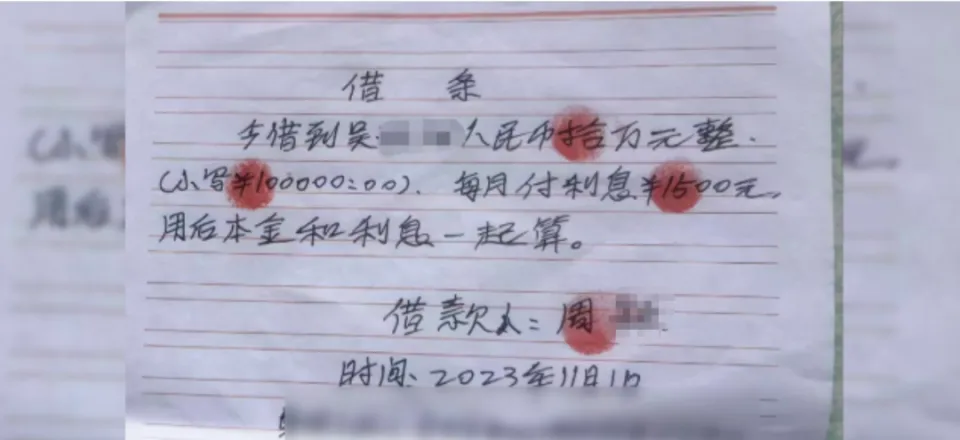 借 条
今借到吴 人民币拾万元整.
(小写¥100000:00). 每月付利息¥1500元,
用后本金和利息一起算。
借款人: 周
时间: 2023年11月1日